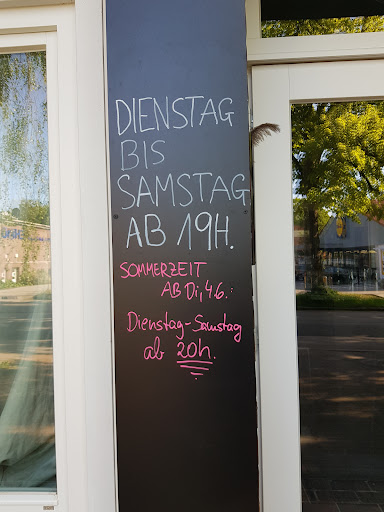 DIENSTAG
BIS
SAMSTAG
AB 19H.
SOMMERZEIT
AB Di, 4.6.:
Dienstag-Samstag
ab 20h.